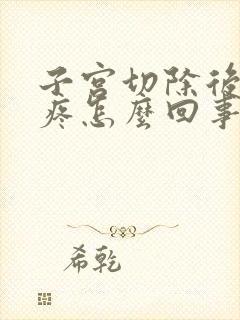 子宮切除後
疼怎麼回事
希乾